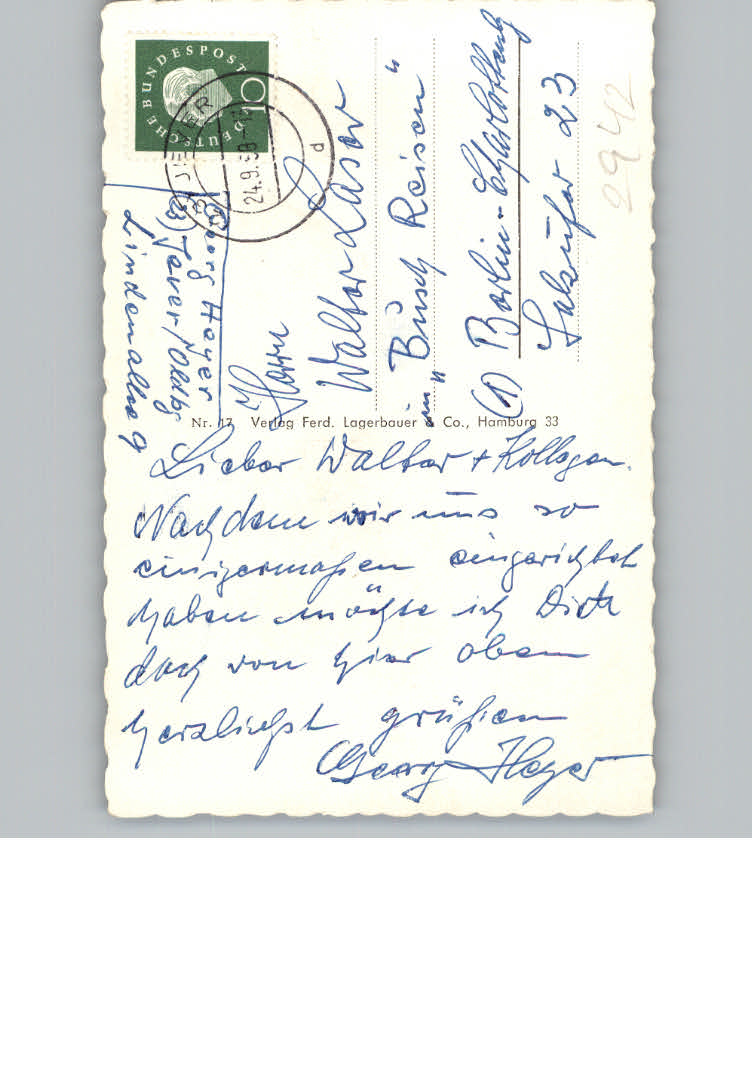 DEUTSCHE BUNDESPOST
10
JEVER
24.9.59
Georg Heyer
(23) Jever/Oldbg
Lindenallee 9
Herrn
Walter Laser
in "Busch Reisen"
(1) Berlin-Charlottenbg
Salzufer 23
2942
Nr. 17 Verlag Ferd. Lagerbauer & Co., Hamburg 33
Lieber Walter + Kollegen.
Nachdem wir uns so
einigermaßen eingerichtet
haben möchte ich Dich
doch von hier oben
herzlichst grüßen
Georg Heyer